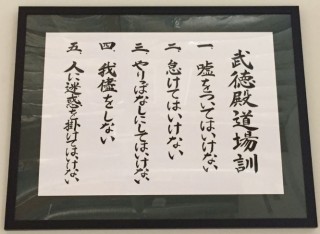 武徳殿道場訓
一、嘘をついてはいけない
二、怠けてはいけない
三、やりっぱなしにしてはいけない
四、我儘をしない
五、人に迷惑を掛けてはいけない